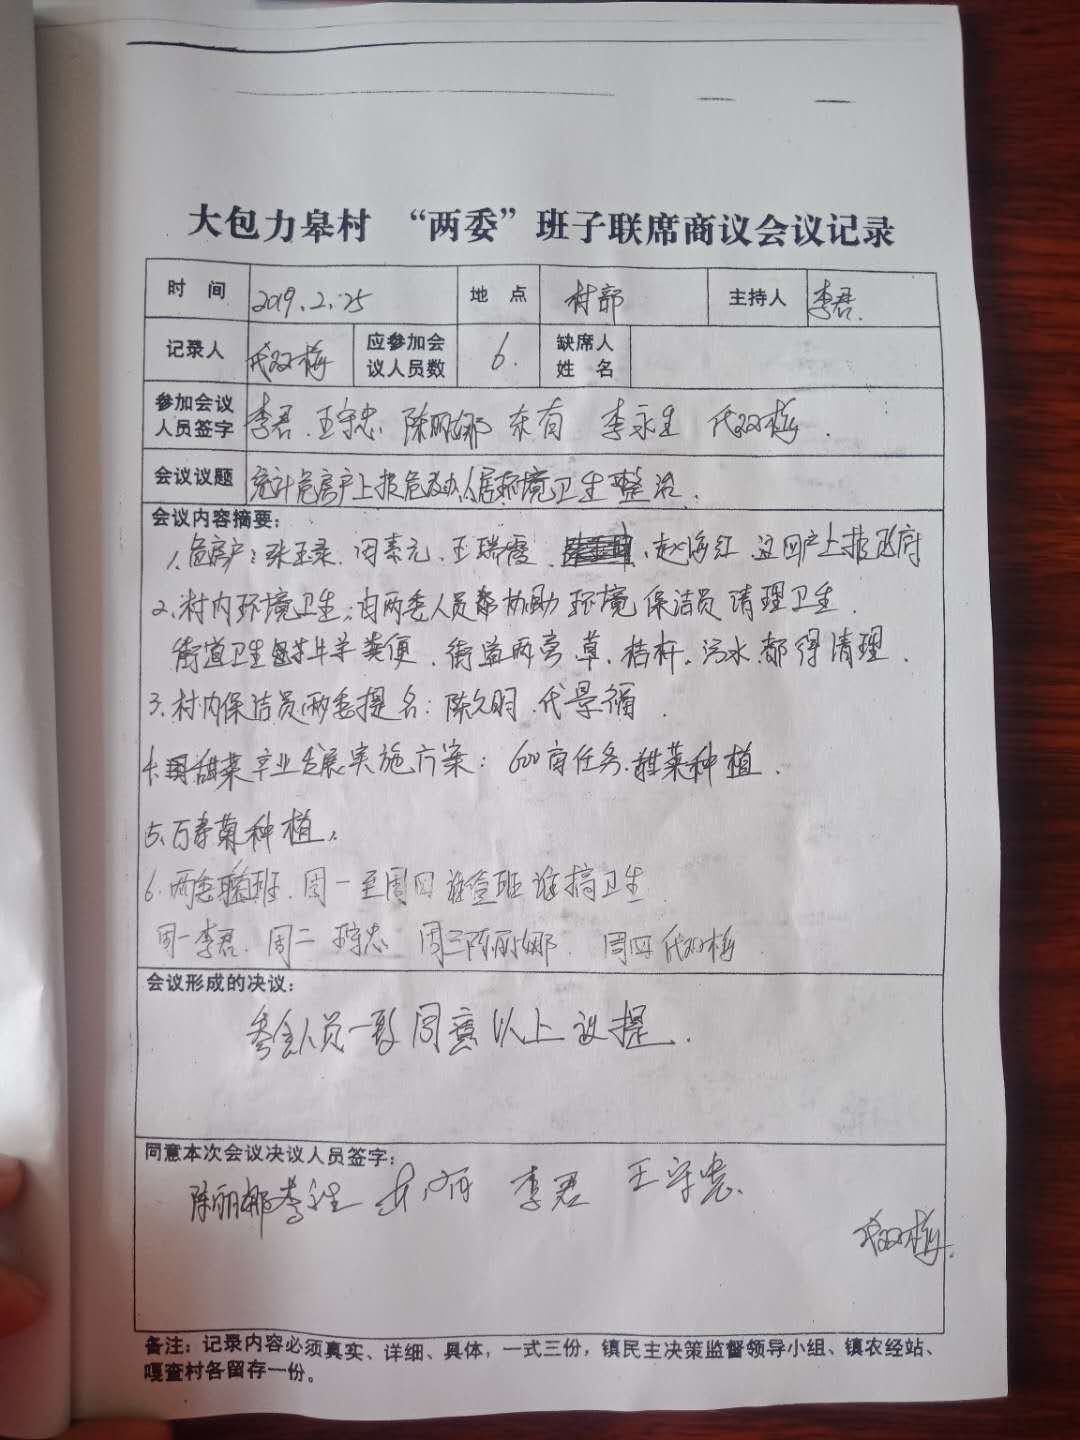 大包力皋村 “两委”班子联席商议会议记录
时 间 2019.2.25 地 点 村部 主持人 李君.
记录人 代双梅 应参加会议人员数 6. 缺席人姓名
参加会议人员签字 李君.王守忠 陈丽娜 东有 李永生 代双梅.
会议议题 统计危房户上报危改办人居环境卫生整治.
会议内容摘要:
1.危房户:张玉录.闫素元.王瑞霞.、赵海红 这四户上报政府
2.村内环境卫生:由两委人员帮协助环境保洁员清理卫生.
街道卫生牛羊粪便.街道两旁草.桔杆.污水.都得清理.
3.村内保洁员两委提名:陈久明.代景福.
4.甜菜产业发展实施方案:600亩任务.甜菜种植.
5.万寿菊种植.
6.两委值班.周一至周四谁值班谁搞卫生
周一李君.周二王守忠 周三陈丽娜. 周四代双梅.
会议形成的决议:
参会人员一致同意以上议提.
同意本次会议决议人员签字:
陈丽娜 李永生 东有 李君 王守忠.
代双梅.
备注:记录内容必须真实、详细、具体,一式三份,镇民主决策监督领导小组、镇农经站、
嘎查村各留存一份。